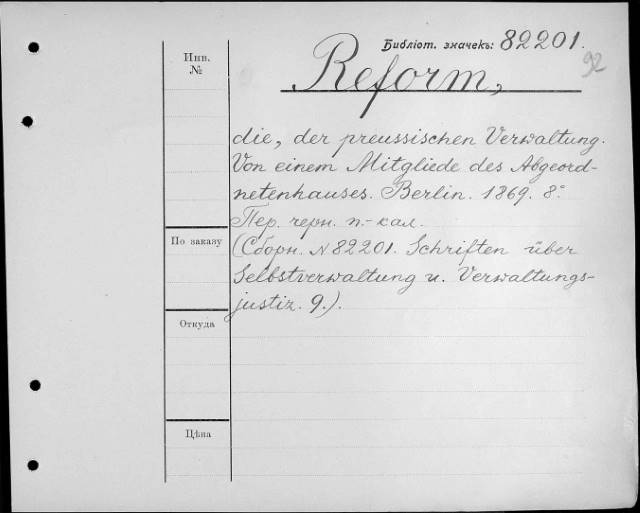 Библіот. значекъ: 82201.
92
Инв.
№
Reform,
die, der preussischen Verwaltung.
Von einem Mitgliede des Abgeord-
netenhauses. Berlin. 1869. 8°.
Пер. черн. п.-кал.
По заказу
(Сборн. № 82201. Schriften über
Selbstverwaltung u. Verwaltungs-
justiz. 9.).
Откуда
Цѣна